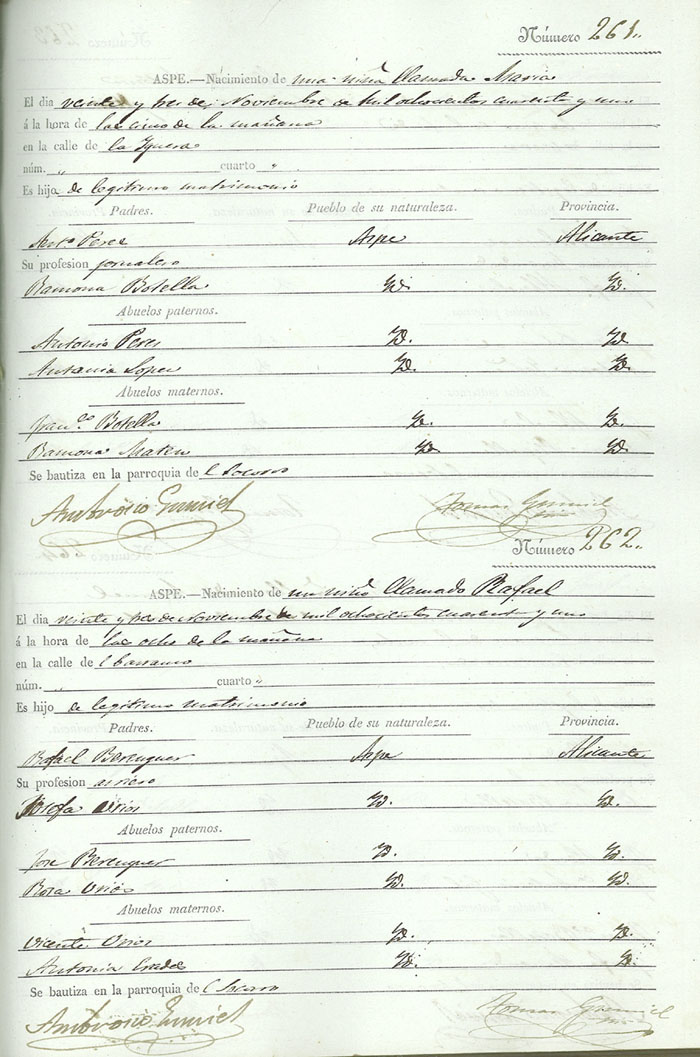 Número 261.
ASPE.—Nacimiento de una niña llamada Maria
El dia veinte y tres de Noviembre de mil ochocientos cuarenta y uno
á la hora de las cinco de la mañana
en la calle de la Yguera
núm. „ cuarto „
Es hija de legitimo matrimonio
Padres. Pueblo de su naturaleza. Provincia.
Antº Perez Aspe Alicante
Su profesion jornalero
Ramona Botella Yd. Yd.
Abuelos paternos.
Antonio Peres Yd. Yd.
Antonia Lopez Yd. Yd.
Abuelos maternos.
Franco. Botella Yd. Yd.
Ramona Mateu Yd. Yd.
Se bautiza en la parroquia del Socorro
Ambrosio
Tomas
Número 262.
ASPE.—Nacimiento de un niño llamado Rafael
El dia veinte y tres de Noviembre de mil ochocientos cuarenta y uno
á la hora de las ocho de la mañana
en la calle del barranco
núm. „ cuarto „
Es hijo de legitimo matrimonio
Padres. Pueblo de su naturaleza. Provincia.
Rafael Berenguer Aspe Alicante
Su profesion arriero
Josefa Urios Yd. Yd.
Abuelos paternos.
Jose Berenguer Yd. Yd.
Rosa Urios Yd. Yd.
Abuelos maternos.
Vicente Urios Yd. Yd.
Antonia Yd. Yd.
Se bautiza en la parroquia del Socorro
Ambrosio
Tomas